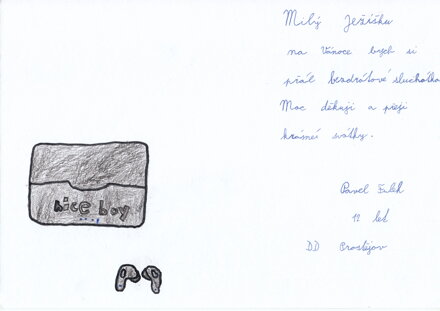 Milý Ježíšku
na Vánoce bych si
přál bezdrátové sluchátka
Moc děkuji a přeji
krásné svátky.
Pavel
12 let
DD Prostějov
nice boy